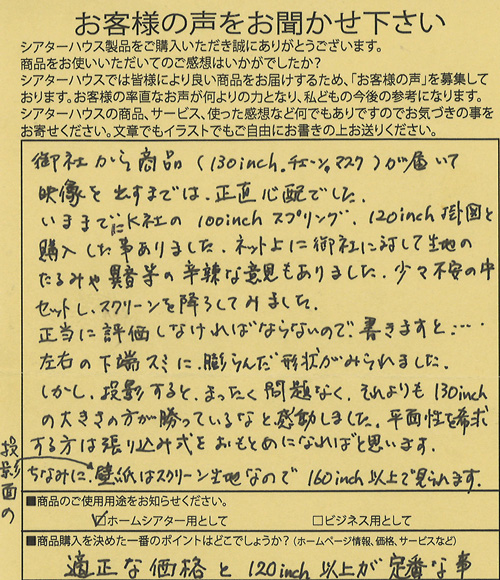 お客様の声をお聞かせ下さい
シアターハウス製品をご購入いただき誠にありがとうございます。
商品をお使いいただいてのご感想はいかがでしたか?
シアターハウスでは皆様により良い商品をお届けするため、「お客様の声」を募集して
おります。お客様の率直なお声が何よりの力となり、私どもの今後の参考になります。
シアターハウスの商品、サービス、使った感想など何でもありですのでお気づきの事を
お寄せください。文章でもイラストでもご自由にお書きの上お送りください。
御社から商品(130inch.チェーン。マスク)が届いて
映像を出すまでは、正直心配でした。
いままでにK社の100inchスプリング、120inch掛図と
購入した事ありました。ネット上に御社に対して生地の
たるみや異音等の辛辣な意見もありました。少々不安の中
セットし、スクリーンを降ろしてみました。
正当に評価しなければならないので、書きますと…
左右の下端スミに、膨らんだ形状がみられました。
しかし、投影すると、まったく問題なく、それよりも130inch
の大きさの方が勝っているなと感動しました。平面性を希求
する方は張り込み式をおもとめになればと思います。
ちなみに、壁紙はスクリーン生地なので160inch以上で見られます。
投影面の
■商品のご使用用途をお知らせください。
☑ホームシアター用として □ビジネス用として
■商品購入を決めた一番のポイントはどこでしょうか?(ホームページ情報、価格、サービスなど)
適正な価格と120inch以上が定番な事